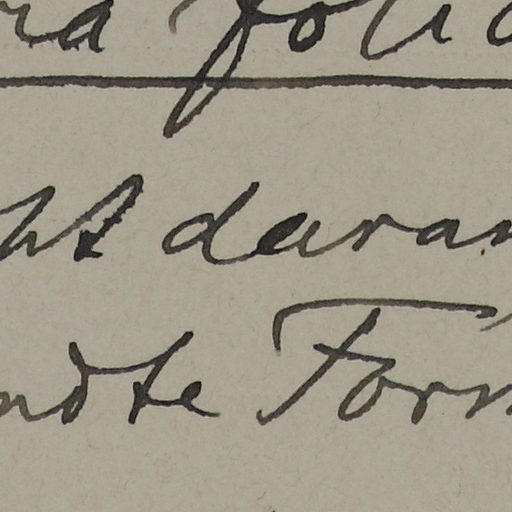 ra foli
ht daran
ndte Form